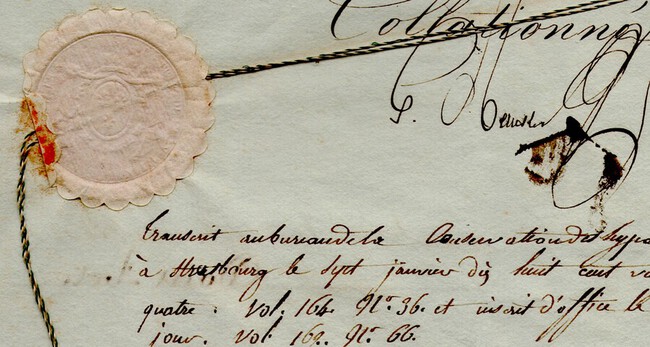 Collationné
transcrit au bureau de la Conservation des hypo
à Strasbourg le sept janvier dix huit cent v
quatre. Vol. 164. N.º 36. et inscrit d'office le
jour. Vol. 162. N.º 66.